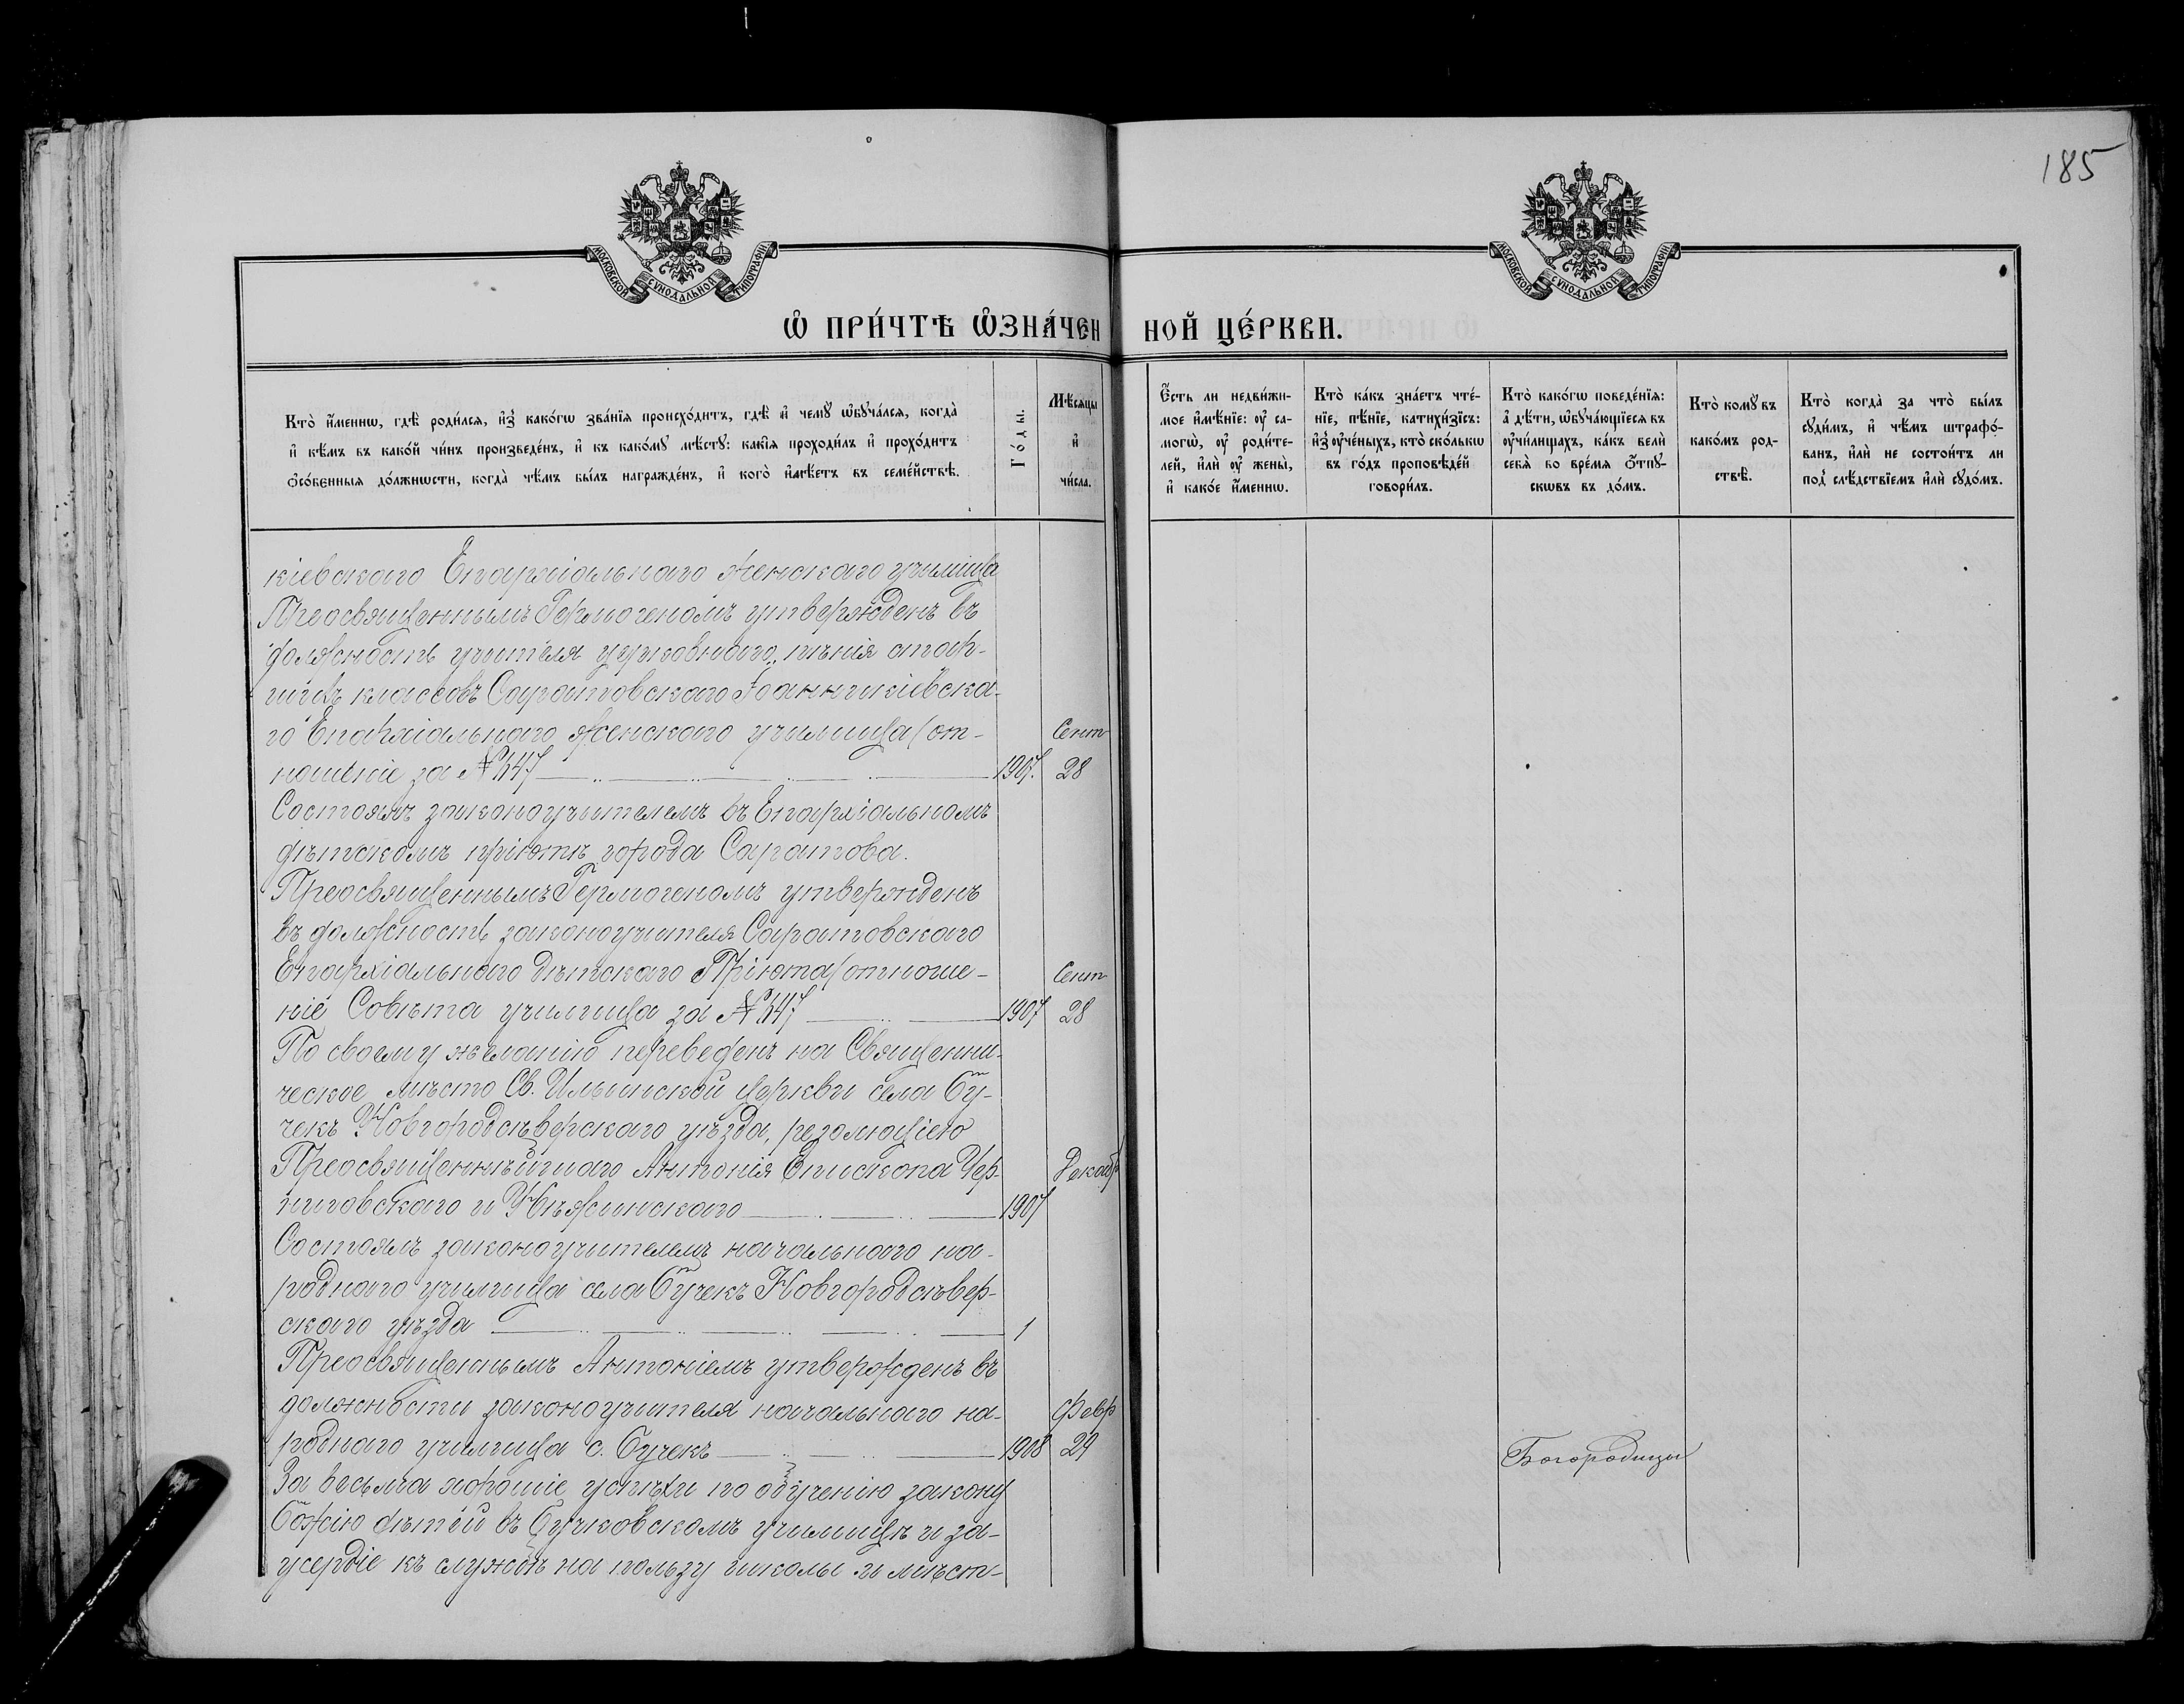 185
МОСКОВСКОЙ СѴНОДАЛЬНОЙ ТИПОГРАФІИ
МОСКОВСКОЙ СѴНОДАЛЬНОЙ ТИПОГРАФІИ
Ѡ҆ ПРИ́ЧТѢ Ѡ҆ЗНА́ЧЕННОЙ ЦЕ́РКВИ.
Кто̀ и҆́меннѡ, гдѣ̀ роди́лсѧ, и҆з̾ како́гѡ зва́нїѧ происхо́дитъ, гдѣ̀ и҆ чемꙋ̀ ѡ҆бꙋча́лсѧ, когда̀
и҆ кѣ́мъ въ како́й чи́нъ произведе́нъ, и҆ къ како́мꙋ мѣ́стꙋ: каки̑ѧ проходи́лъ и҆ прохо́дитъ
ѻ҆со́бенныѧ до́лжнѡсти, когда̀ чѣ́мъ бы́лъ награжде́нъ, и҆ кого̀ и҆мѣ́етъ въ семе́йствѣ.
Го́ды.
Мѣ́сѧцы
и҆
чи́сла.
Є҆́сть ли недви́жи-
мое и҆мѣ́нїе: оу҆ са-
могѡ̀, оу҆ роди́те-
лей, и҆лѝ оу҆ жены̀,
и҆ како́е и҆́меннѡ.
Кто̀ ка́къ зна́етъ чте́-
нїе, пѣ́нїе, катихи́зїсъ:
и҆з̾ оу҆че́ныхъ, кто̀ ско́лькѡ
въ го́дъ проповѣ́дей
говори́лъ.
Кто̀ како́гѡ поведе́нїѧ:
а҆ дѣ́ти, ѡ҆бꙋча́ющїесѧ въ
оу҆чи́лищахъ, ка́къ велѝ
себѧ̀ во вре́мѧ ѿпꙋ-
скѡвъ въ до́мъ.
Кто̀ комꙋ̀ въ
како́мъ род-
ствѣ̀.
Кто̀ когда̀ за что̀ бы́лъ
сꙋди́мъ, и҆ чѣ́мъ штрафо́-
ванъ, и҆лѝ не состои́тъ ли
под̾ слѣ́дствїемъ и҆лѝ сꙋдо́мъ.
кіевскаго Епархіальнаго женскаго училища
Преосвященнымъ Гермогеномъ утвержденъ въ
должность учителя церковнаго пѣнія стар-
шихъ классовъ Саратовскаго Іоанникіевска-
го Епархіальнаго женскаго училища (от- Сент
ношеніе за № 647 1907. 28
Состоялъ законоучителемъ въ Епархіальномъ
дѣтскомъ пріютѣ города Саратова.
Преосвященнымъ Гермогеномъ утвержденъ
въ должность законоучителя Саратовскаго
Епархіальнаго Дѣтскаго Пріюта (отноше- Сент
ніе Совѣта училища за № 647 1907 28
По своему желанію переведенъ на Священни-
ческое мѣсто Св. Ильинской церкви села Бу-
чекъ Новгородсѣверскаго уѣзда, резолюціею
Преосвященнѣйшаго Антонія Епископа Чер- Декабр
ниговскаго и Нѣжинскаго 1907
Состоялъ законоучителемъ начальнаго на-
роднаго училища села Бучекъ Новгородсѣвер-
скаго уѣзда 1
Преосвященнымъ Антоніемъ утвержденъ въ
должности законоучителя начальнаго на- Февр
роднаго училища с. Бучекъ 1908 29
Богородицы
За весьма хорошіе успѣхи по обученію закону
Божію дѣтей въ Бучковскомъ училищѣ и за-
усердіе къ службѣ на пользу школы и мѣст-